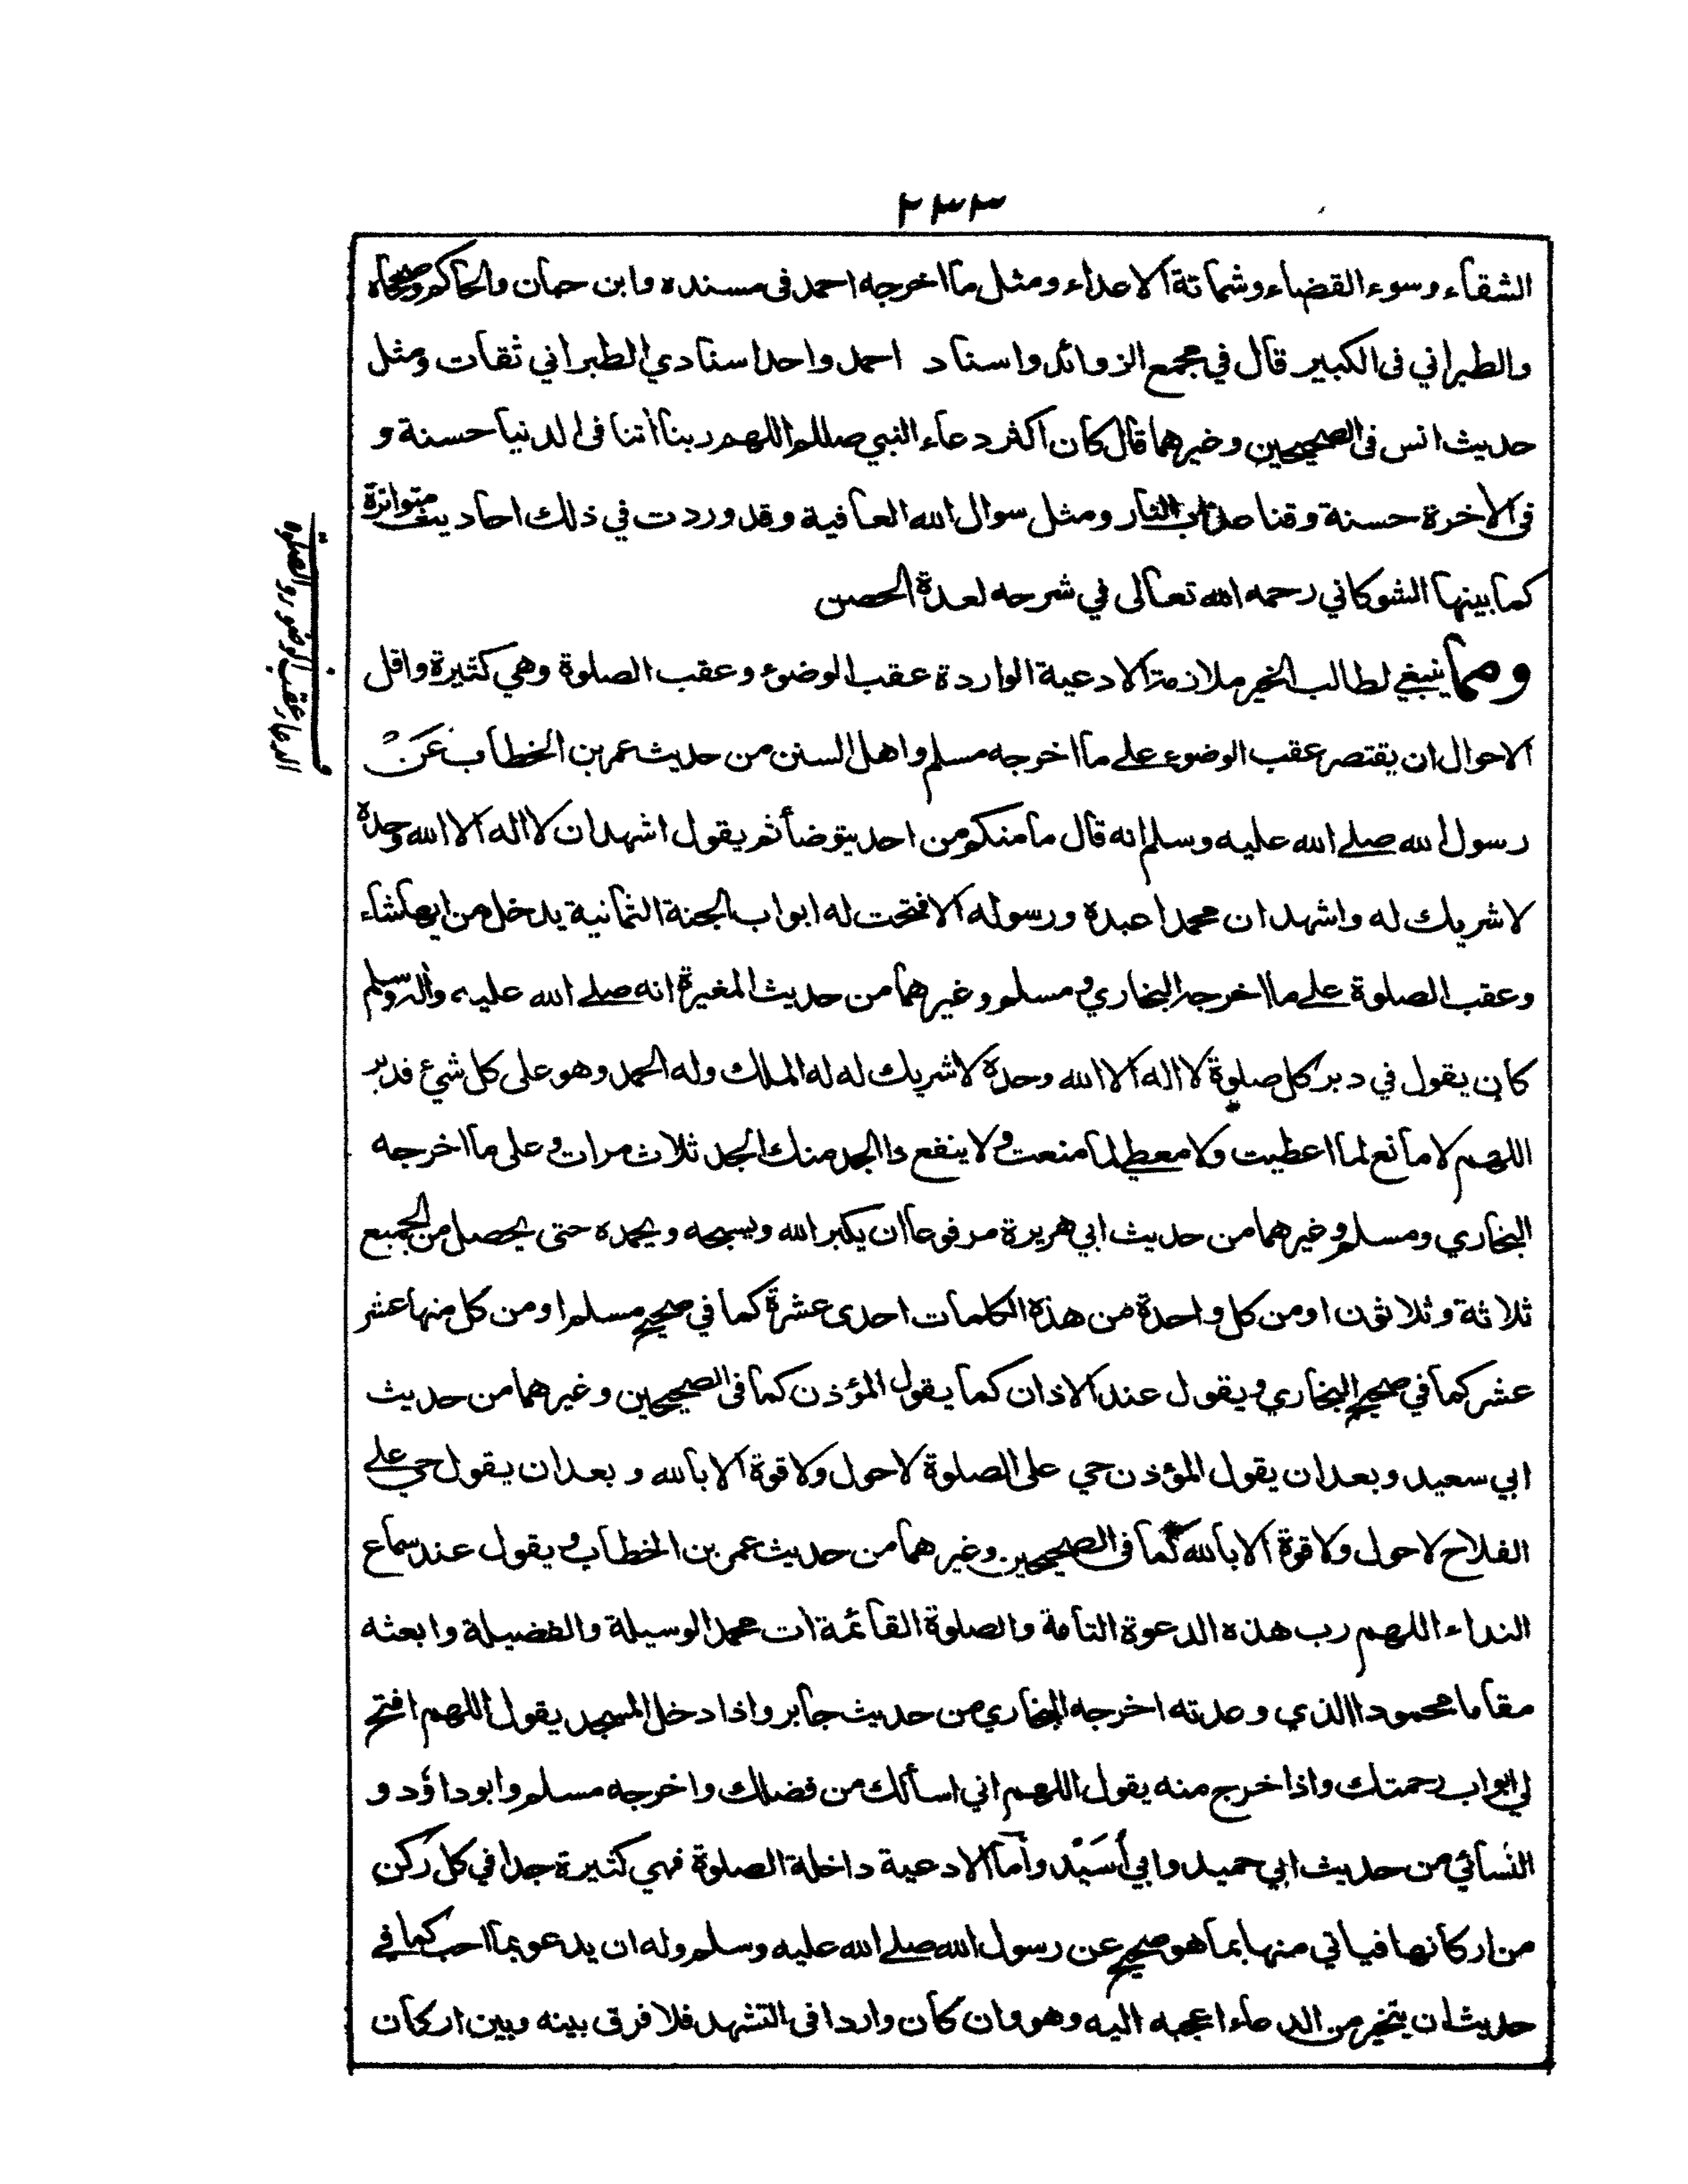 ٢٣٣
الشقاء وسوء القضاء وشماتة الاعداء ومثل ما اخرجه احمد فى مسنده وابن حبان والحاكم وصححاه
والطبراني فى الكبير قال في مجمع الزوائد واسناد احمد واحد اسنادي الطبراني ثقات ومثل
حديث انس فى الصحيحين وغيرهما قال كان اكثر دعاء النبي صللم اللهم ربنا اتنا فى الدنيا حسنة و
فى الاخرة حسنة وقنا عذاب النار ومثل سوال الله العافية وقد وردت في ذلك احاديث متواترة
كما بينها الشوكاني رحمه الله تعالى في شرحه لعدة الحصن
ومما ينبغي لطالب الخير ملازمة الادعية الواردة عقب الوضوء وعقب الصلوة وهي كثيرة واقل
الاحوال ان يقتصر عقب الوضوء على ما اخرجه مسلم واهل السنن من حديث عمر بن الخطاب عَنْ
رسول الله صلى الله عليه وسلم انه قال ما منكم من احد يتوضأ ثم يقول اشهد ان لا اله الا الله وحدة
لا شريك له واشهد ان محمدا عبدة ورسوله الا فتحت له ابواب الجنة الثمانية يدخل من ايها شاء
وعقب الصلوة على ما اخرجه البخاري ومسلم وغيرهما من حديث المغيرة انه صلى الله عليه واله وسلم
كان يقول في دبر كل صلوة لا اله الا الله وحدة لا شريك له له الملك وله الحمد وهو على كل شئ قدير
اللهم لا مانع لما اعطيت ولا معطي لما منعت ولا ينفع ذا الجد منك الجد ثلاث مرات وعلى ما اخرجه
البخاري ومسلم وغيرهما من حديث ابي هريرة مرفوعا ان يكبر الله ويسبحه ويحمده حتى يحصل من الجميع
ثلاثة وثلاثون او من كل واحدة من هذة الكلمات احدى عشرة كما في صحيح مسلم او من كل منها عشر
عشر كما في صحيح البخاري ويقول عند الاذان كما يقول المؤذن كما فى الصحيحين وغيرهما من حديث
ابي سعيد وبعد ان يقول المؤذن حي على الصلوة لا حول ولا قوة الا بالله وبعد ان يقول حي على
الفلاح لا حول ولا قوة الا بالله كما فى الصحيحين وغيرهما من حديث عمر بن الخطاب ويقول عند سماع
النداء اللهم رب هذه الدعوة التامة والصلوة القائمة ات محمد الوسيلة والفضيلة وابعثه
مقاما محمودا الذي وعدته اخرجه البخاري من حديث جابر واذا دخل المسجد يقول اللهم افتح
لي ابواب رحمتك واذا خرج منه يقول اللهم اني اسألك من فضلك واخرجه مسلم وابو داؤد و
النسائي من حديث ابي حميد وابي أُسَيْد واما الادعية داخلة الصلوة فهي كثيرة جدا في كل ركن
من اركانها فياتي منها بما هو صحيح عن رسول الله صلى الله عليه وسلم وله ان يدعو بما احب كما في
حديث ان يتخير من الدعاء اعجبه اليه وهو وان كان واردا فى التشهد فلا فرق بينه وبين اركان
الدعاء عقب الوضوء والصلوة